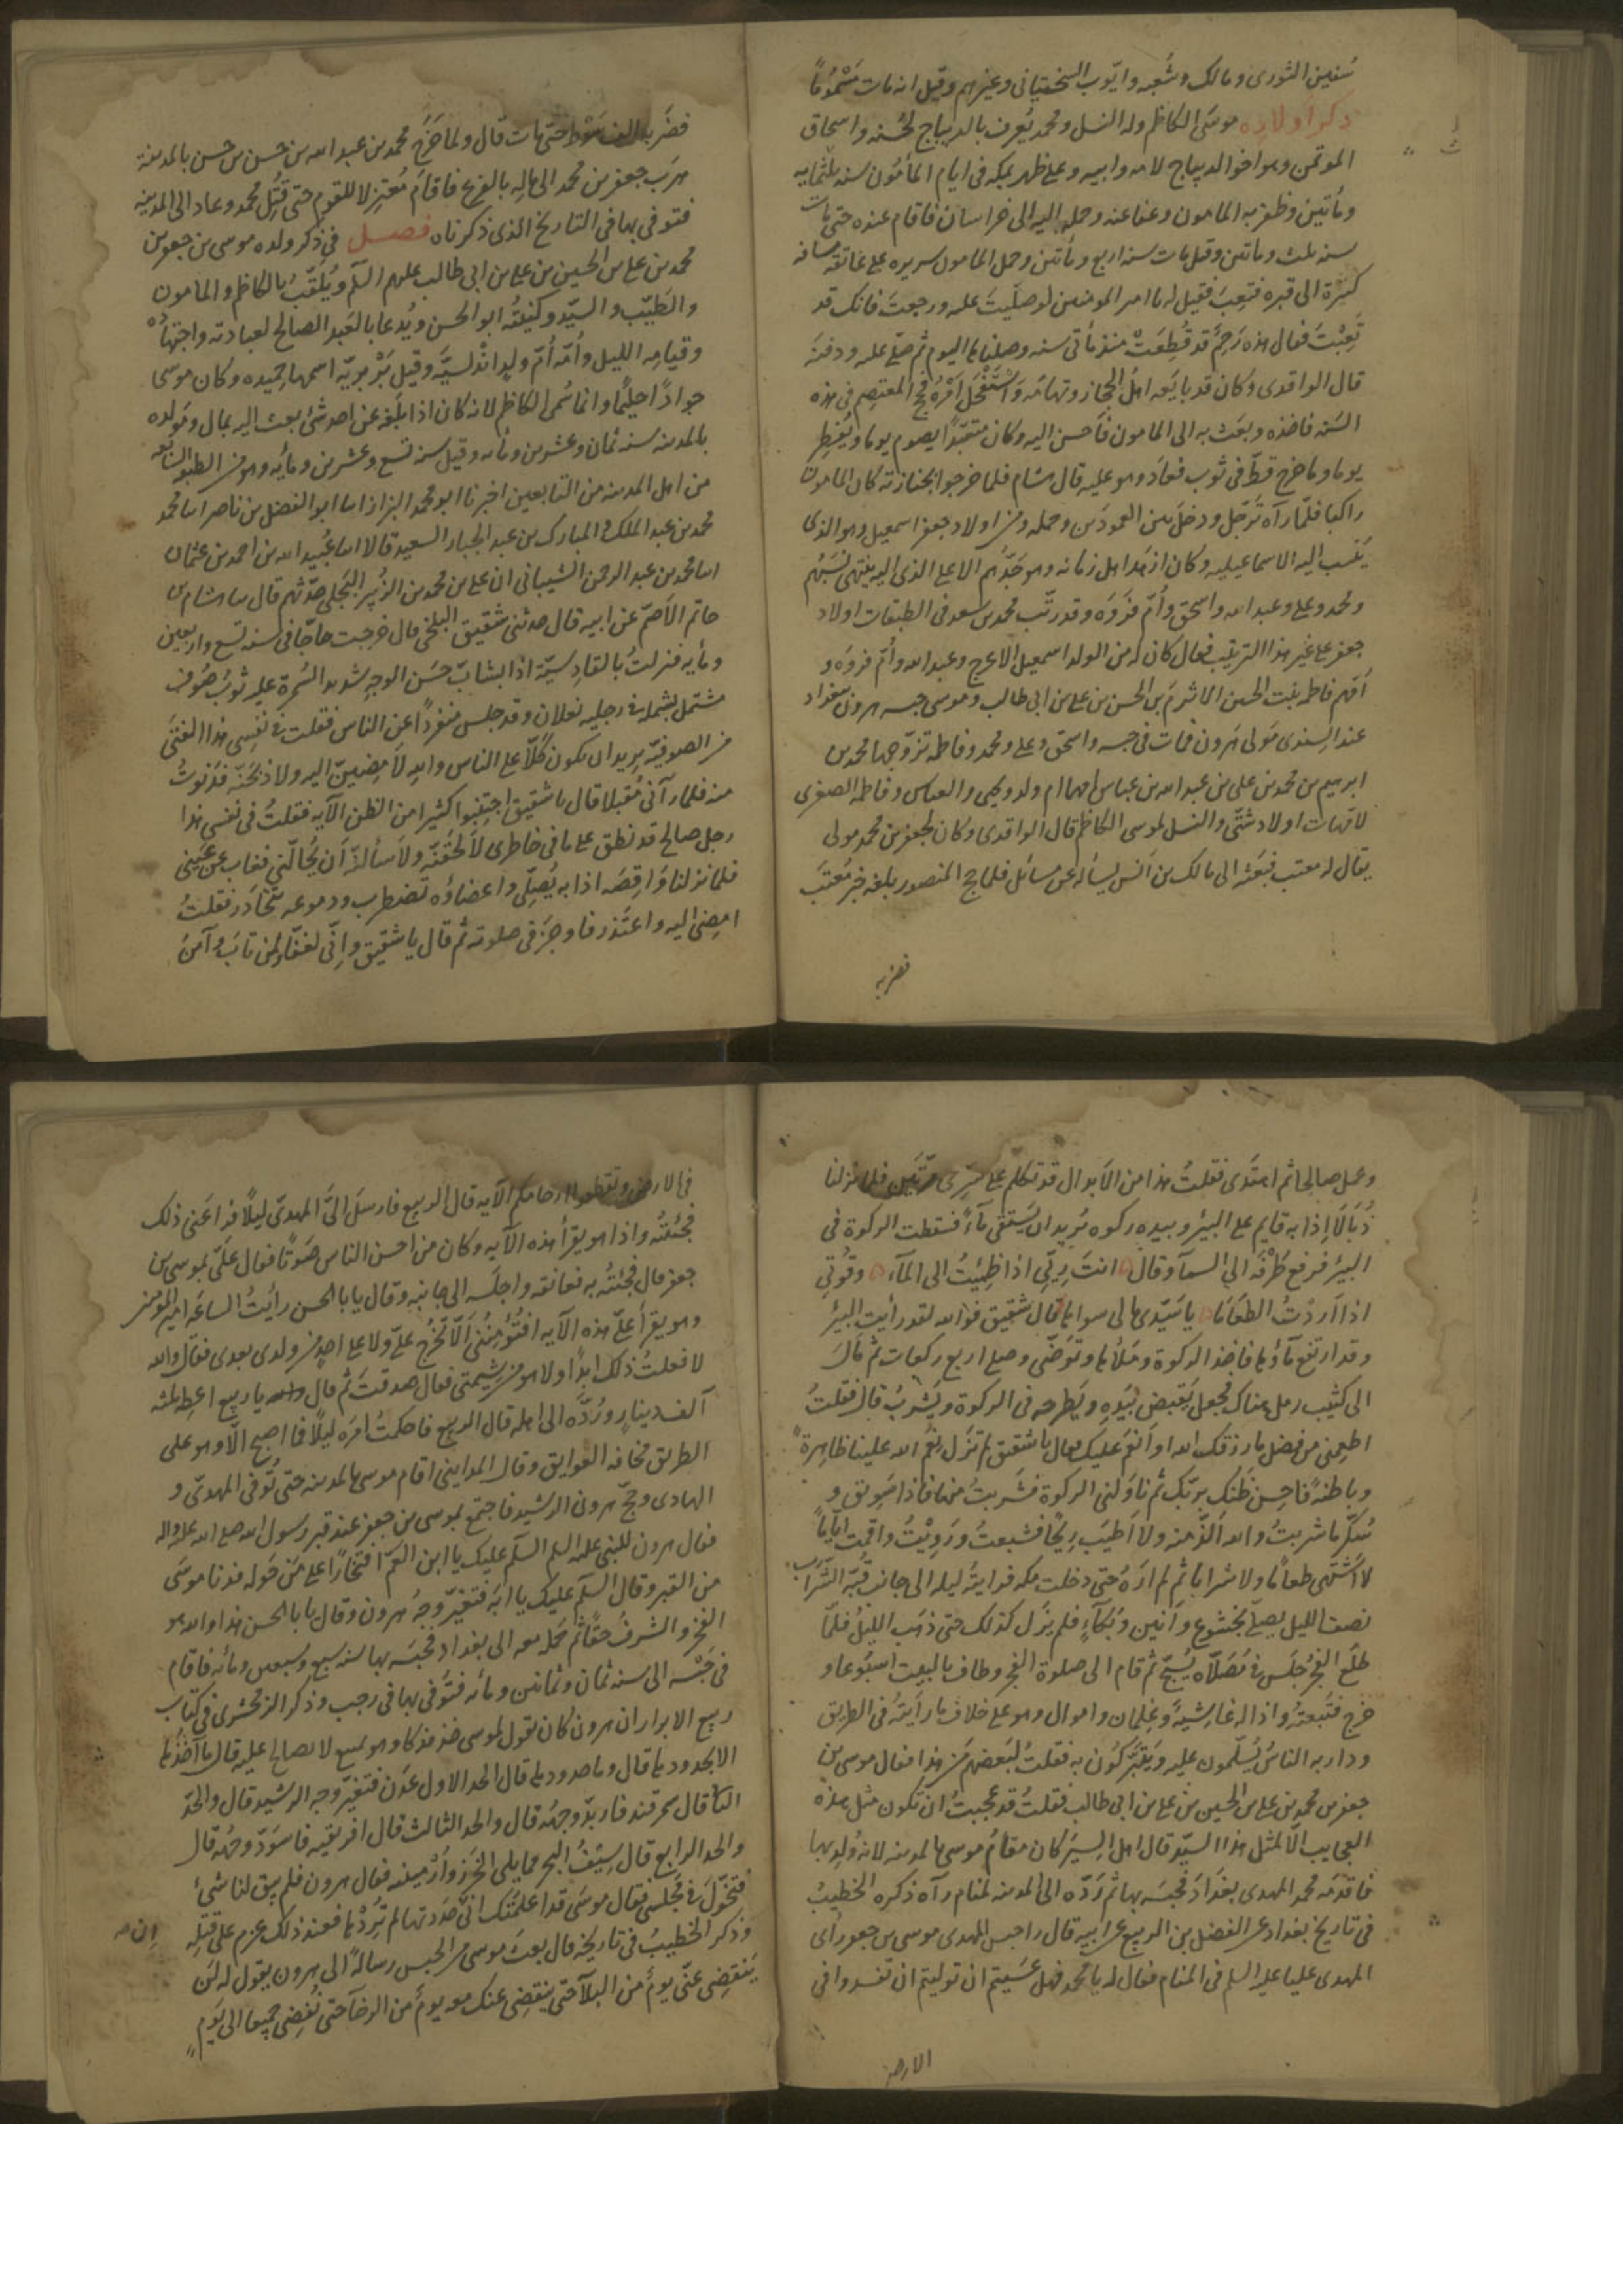 سُفين الثورى ومالك وشُعبه وايّوب السختيانى وغيرهم وقيل انه مات مَسْمُومًا
ذكر اولاده موسَى الكاظم وله النسل ومحمد يُعرف بالديباج لحُسنه واسحاق
الموتمن وهو اخو الديباج لامه وابيه وعلى ظهر بمكه فى ايام المأمُون سنه
ومأتين وظفر به المامون وعفا عنه وحمله اليه الى خراسان فاقام عنده حتى مات
سنه ثلث ومأتين وقيل مات سنه اربع ومأتين وحمل المامون سريره على عاتقه مسافه
كبيرة الى قبره فتعِبَ فقيل له يا امير المومنين لو صلّيتَ عليه ورجعتَ فانك قد
تَعِبْتَ فقال هذه رَحِمٌ قد قُطِعَتْ منذ مأتى سنه وصلناها اليوم ثم صلى عليه ودفنه
قال الواقدى وكان قد بايَعه اهلُ الحجاز وتهامَه وَاسْتَفْحَل اَمْرُهُ فحج المعتصِم فى هذه
السَنه فاخذه وبعَث به الى المامون فأحسن اليه وكان متعبّدًا يصوم يوما ويُفطِر
يوما وما خرج قطّ فى ثوب فعادَ وهو عليه قال هشام فلما خرجوا بجنازته كان المامون
راكبا فلمّا رآه تَرجّل ودخلَ بين العمودَين وحمله ومن اولاد جعفر اسمعيل وهو الذى
يُنسب اليه الاسماعيليه وكان ازهَد اهل زمانه وهو جَدّهُم الاعلى الذى اليه ينتهى نسَبُهم
ومحمد وعلى وعبد الله واسحق واُمّ فَروَه وقد رتّب محمد بن سعد فى الطبقات اولاد
جعفر على غير هذا الترتيب فقال كان له من الولد اسمعيل الاعرج وعبد الله واُمّ فروَه و
اُمّهم فاطمه بنت الحسين الاثرم بن الحسن بن على بن ابى طالب وموسى حبسه هرون ببغداد
عند السِندى مَولى هَرون فمات فى حبسه واسحق وعلى ومحمد وفاطمه تزوّجها محمد بن
ابرهيم بن محمد بن على بن عبد الله بن عباس امهما ام ولد ويحيى والعباس وفاطمه الصغرى
لامّهات اولاد شتّى والنسل لموسى الكاظم قال الواقدى وكان لجعفر بن محمد مولى
يقال له معتب فبَعثه الى مالك بن اَنَس يسأله عن مسائل فلما حج المنصور بلغه خبر مُعتبَ
فضربه
فضَربه الف سَوْط حتى مات قال ولما خَرَج محمد بن عبد الله بن حسن بن حسن بالمدينة
هرَب جعفر بن محمد الى مالِه بالفرع فاقامَ مُعتزِلا للقوم حتى قُتِل محمد وعاد الى المدينه
فتوفى بها فى التاريخ الذى ذكرناه فصــل فى ذكر ولده موسى بن جعفر بن
محمد بن على بن الحسين بن على بن ابى طالب عليهم السلم ويُلقّبُ بالكاظم والمامون
والطَيّب والسيّد وكنيتُه ابو الحسن ويُدعا بالعَبد الصالح لعبادته واجتهاده
وقيامِه الليل واُمّه اُمّ ولدٍ اندُلسيَّة وقيل بَرْبَريّه اسمها حميده وكان موسى
جوادًا حليمًا وانما سُمى الكاظم لانه كان اذا بَلَغه عن احد شئ بعث اليه بمال ومَولده
بالمدينه سنه ثمان وعشرين ومائه وقيل سنه تسع وعشرين ومايه وهو من الطبقه السابعه
من اهل المدينه من التابعين اخبرنا ابو محمد البزاز انا ابو الفضل بن ناصر انا محمد
محمد بن عبد الملك والمبارك بن عبد الجبار السعيد قالا انا عُبيد الله بن احمد بن عثمان
انا محمد بن عبد الرحمن الشيبانى ان على بن محمد بن الزُبير البَجَلى حدّثهم قال ثنا هشام بن
حاتم الاَصَمّ عن ابيه قال حدثنى شقيق البلخى قال خرجت حاجّا فى سنه تسع واربعين
ومأيه فنزلتُ بالقادسيّة اذا بشابّ حَسَن الوجهِ شديد السُمرة عليه ثوبُ صُوف
مشتمل بشمله فى رجليه نعلان وقد جلس منفردًا عن الناس فقلت فى نفسِى هذا الفتَى
من الصوفيّه يريد ان يكون كَلّا على الناس واللهِ لاَمضينّ اليه ولاوبخنّه فدنَوتُ
منه فلما رآنى مُقبلا قال يا شقيق اجتنِبوا كثيرا من الظن الآيه فقلتُ فى نفسى هذا
رجل صالح قد نطق على ما فى خاطرى لاَلحَقنّه ولاَسألنّه اَن يُحالّنى فغاب عن عَينى
فلما نزلنا وَاقِصَه اذا به يُصَلّى واعضاؤه تضطرب ودموعه تتحادَر فقلتُ
امضى اليه واعتَذر فاَوجزَ فى صلوته ثم قال يا شقيق وانّى لغفّار لمن تابَ وآمنَ
وعمل صالحا ثم اهتدَى فقلتُ هذا من الاَبدال قد تكلم على سِرّى مرّتَين فلما نزلنا
زُبَالَا اِذا به قايم على البئر وبيده ركوه يُريد ان يَستقى مآءً فسقطت الركوة فى
البئر فرفع طَرْفَه الى السمآ وقال انتَ رِيّى اذا ظَمِئتُ الى المآء وقُوتى
اذا اَردْتُ الطعَاما يا سَيّدى مالى سواها قال شقيق فوالله لقد رأيت البئرَ
وقد ارتفع ماؤها فاخذ الركوة وملأها وتوَضّى وصلى اربع ركعات ثم مالَ
الى كثيب رمل هناك فجعل يَقبِض بيَدِه ويَطرحه فى الركوة ويَشرَبُ قال فقلتُ
اطعِمنى من فضل ما رزقك الله او اَنعَم عليك فقال يا شقيق لم تزَل نِعَمُ الله علينا ظاهرةً
وباطنةً فاَحسِن ظَنك بربّك ثم ناوَلنى الركوة فشَربتُ منها فاذا سَويق و
سُكّر ما شربتُ والله اَلذَّ منه ولا اَطيَب رِيحًا فشبعتُ ورَوِيْتُ واقمت اَيّاماً
لا اَشتهى طعامًا ولا شرابا ثم لم ارَهُ حتى دخلت مكه فرايتُه ليله الى جانب قُبّه الشَرَاب
نصف الليل يصلى بخشوع وَانين وبُكآء فلم يزَل كذلك حتى ذهَب الليلُ فلمّا
طلَع الفجرُ جلَس فى مُصَلّاه يُسبّح ثم قام الى صلوة الفجر وطاف بالبيت اسبُوعا و
خرج فتَبعتهُ واذا له غاشيةٌ وغِلمان واموال وهو على خلاف ما رأيتُه فى الطريق
ودار به الناسُ يُسلّمون عليه ويَتبَرّكوُن به فقلتُ لبَعضهم مَن هذا فقال موسى بن
جعفر بن محمد بن على بن الحسين بن على بن ابى طالب فقلتُ قد عجبتُ ان تكون مثل هذه
العجايب الّا لمثل هذا السيّد قال اهل السِيَر كان مقامُ موسى بالمدينه لانه وُلِد بها
فاقدمَه محمد المهدى بغدادَ فحبسَه بها ثم رَدّه الى المدينه لمنام رآه ذكره الخطيبُ
فى تاريخ بغداد عن الفضل بن الربيع عن ابيه قال لما حبس المهدى موسى بن جعفر رأى
المهدى عليا عليه السلم فى المنام فقال له يا محمد فهل عسَيتم ان توليتم ان تفسدوا فى
الارض
فى الارض وتقطعوا ارحامكم الآيه قال الربيع فارسلَ الىَّ المهدىّ ليلًا فراعَنى ذلك
فجئتُه واذا هو يقرأ هذه الآيه وكان من احسن الناس صَوتًا فقال علىّ بموسى بن
جعفر قال فجئتُه به فعانقه واجلَسه الى جانبه وقال يابا الحسن رأيتُ الساعَه امير المومنين
وهو يقرأ علىّ هذه الآيه افتُؤمِنُنى اَلّا تَخرُج علىّ ولا على احدٍ من ولدى بعدى فقال والله
لا فعلتُ ذلك ابدًا ولا هو من شيمتى فقال صدقتَ ثم قال يا ربيع اعطِه ثلثه
آلف دينار ورُدّه الى اهله قال الربيع فاحكمتُ امرَه ليلًا فما اصبح الّا وهو على
الطريق مخافه العوايق وقال المداينى اقام موسى بالمدينه حتى تُوفى المهدىّ و
الهادى وحجّ هرون الرشيد فاجتمع بموسى بن جعفر عند قبر رسول الله صلى الله عليه واله
فقال هرون للنبى عليه السلم السلم عليك يا ابن العَمّ افتخارًا على مَن حَوله فدنا موسَى
من القبر وقال السلم عليك يا ابَه فتغيّر وجهُ هرون وقال يابا الحسن هذا والله هو
الفخر والشرفُ حقًّا ثم حَمله معه الى بغداد فحبسَه بها سنه سبع وسبعين ومأئه فاقام
فى حَبْسه الى سنه ثمان وثمانين ومأئه فتُوفى بها فى رجب وذكر الزمخشرى فى كتاب
ربيع الابرار ان هرون كان يقول لموسى خذ فدكا وهو يمتنع لا يصالح عليه قال ما آخذُها
الا بحدودها قال وما حدودها قال الحد الاول عَدَن فتغيّر وجه الرشيد قال والحدّ
الثانى قال سمرقند فاربدّ وجهُه قال والحد الثالث قال افريقيه فاسوَدّ وجهُه قال
والحد الرابع قال سِيْفُ البحر مما يلى الخَزر وارْمينيه فقال هرون فلم يبق لنا شئ
فتحَوّلْ فى مجلسى فقال موسَى قد اعلمتك اَنّى ان حَدَدتها لم تَرُدّها فعند ذلك عزم على قتله
وذكر الخطيبُ فى تاريخه قال بعثَ موسى من الحبس رسالةً الى هرون يقول له لن
يَنقضِى عنّى يومٌ من البَلاَ حتى ينقضِى عنك معه يومٌ من الرخآ حتى نُفضِى جميعا الى يَومٍ